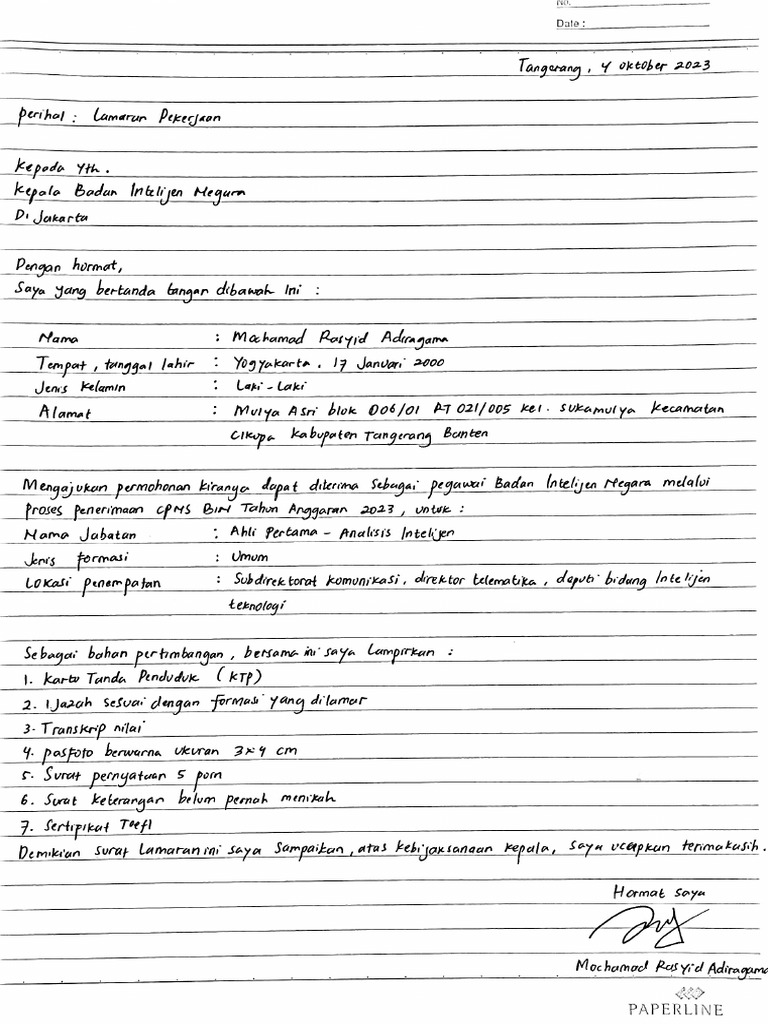 No.
Date :
Tangerang, 4 Oktober 2023
perihal : Lamaran Pekerjaan
Kepada Yth.
Kepala Badan Intelijen Negara
Di Jakarta
Dengan hormat,
Saya yang bertanda tangan dibawah ini :
Nama : Mochamad Rasyid Adiragama
Tempat, tanggal lahir : Yogyakarta, 17 Januari 2000
Jenis Kelamin : Laki-Laki
Alamat : Mulya Asri blok D06/01 RT 021/005 kel. sukamulya kecamatan
Cikupa kabupaten Tangerang Banten
Mengajukan permohonan kiranya dapat diterima sebagai pegawai Badan Intelijen Negara melalui
proses penerimaan CPNS BIN Tahun Anggaran 2023, untuk :
Nama Jabatan : Ahli Pertama - Analisis Intelijen
Jenis formasi : Umum
Lokasi penempatan : Subdirektorat komunikasi, direktor telematika, deputi bidang Intelijen
teknologi
Sebagai bahan pertimbangan, bersama ini saya Lampirkan :
1. Kartu Tanda Penduduk (KTP)
2. Ijazah sesuai dengan formasi yang dilamar
3. Transkrip nilai
4. pasfoto berwarna ukuran 3x4 cm
5. Surat pernyataan 5 poin
6. Surat keterangan belum pernah menikah
7. Sertipikat Toefl
Demikian surat Lamaran ini saya sampaikan, atas kebijaksanaan kepala, saya ucapkan terimakasih.
Hormat saya
Mochamad Rasyid Adiragama
PAPERLINE